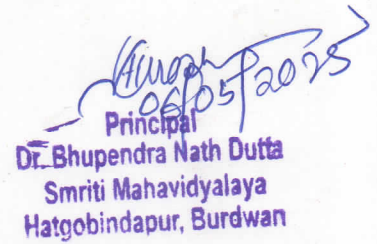 06/05/2025
Principal
Dr. Bhupendra Nath Dutta
Smriti Mahavidyalaya
Hatgobindapur, Burdwan